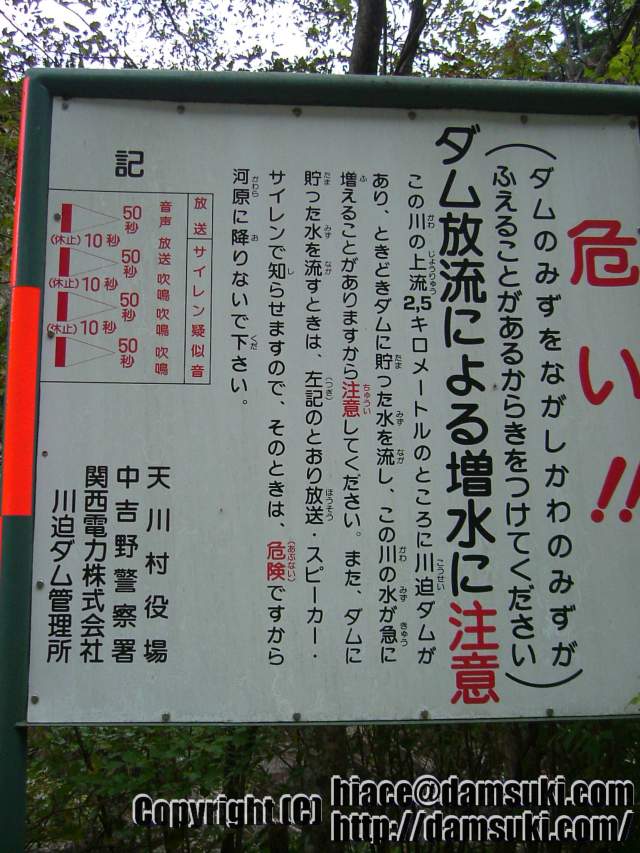 危い!!
(ダムのみずをながしかわのみずが
ふえることがあるからきをつけてください)
ダム放流による増水に注意
この川の上流2,5キロメートルのところに川迫ダムが
あり、ときどきダムに貯った水を流し、この川の水が急に
増えることがありますから注意してください。また、ダムに
貯った水を流すときは、左記のとおり放送・スピーカー・
サイレンで知らせますので、そのときは、危険ですから
河原に降りないで下さい。
記
放送 サイレン疑似音
音声放送 吹鳴 吹鳴 吹鳴
50秒 50秒 50秒 50秒
(休止)10秒 (休止)10秒 (休止)10秒
天川村役場
中吉野警察署
関西電力株式会社
川迫ダム管理所
Copyright (C) hiace@damsuki.com
http://damsuki.com/